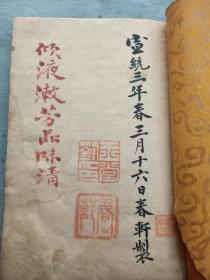 宣統三年春三月十六日春軒製
傾液漱芳品味清